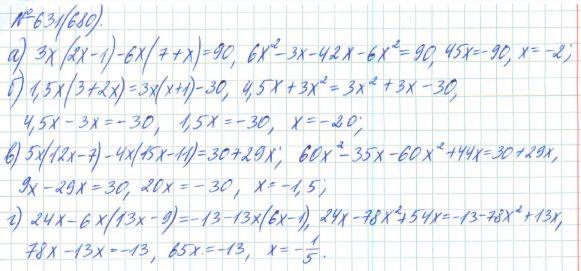 №631(680).
а) 3x(2x-1)-6x(7+x)=90, 6x²-3x-42x-6x²=90, 45x=-90, x=-2;
б) 1,5x(3+2x)=3x(x+1)-30, 4,5x+3x²=3x²+3x-30,
4,5x-3x=-30, 1,5x=-30, x=-20;
в) 5x(12x-7)-4x(15x-11)=30+29x; 60x²-35x-60x²+44x=30+29x,
9x-29x=30, 20x=-30, x=-1,5;
г) 24x-6x(13x-9)=-13-13x(6x-1), 24x-78x²+54x=-13-78x²+13x,
78x-13x=-13, 65x=-13, x=-1/5.